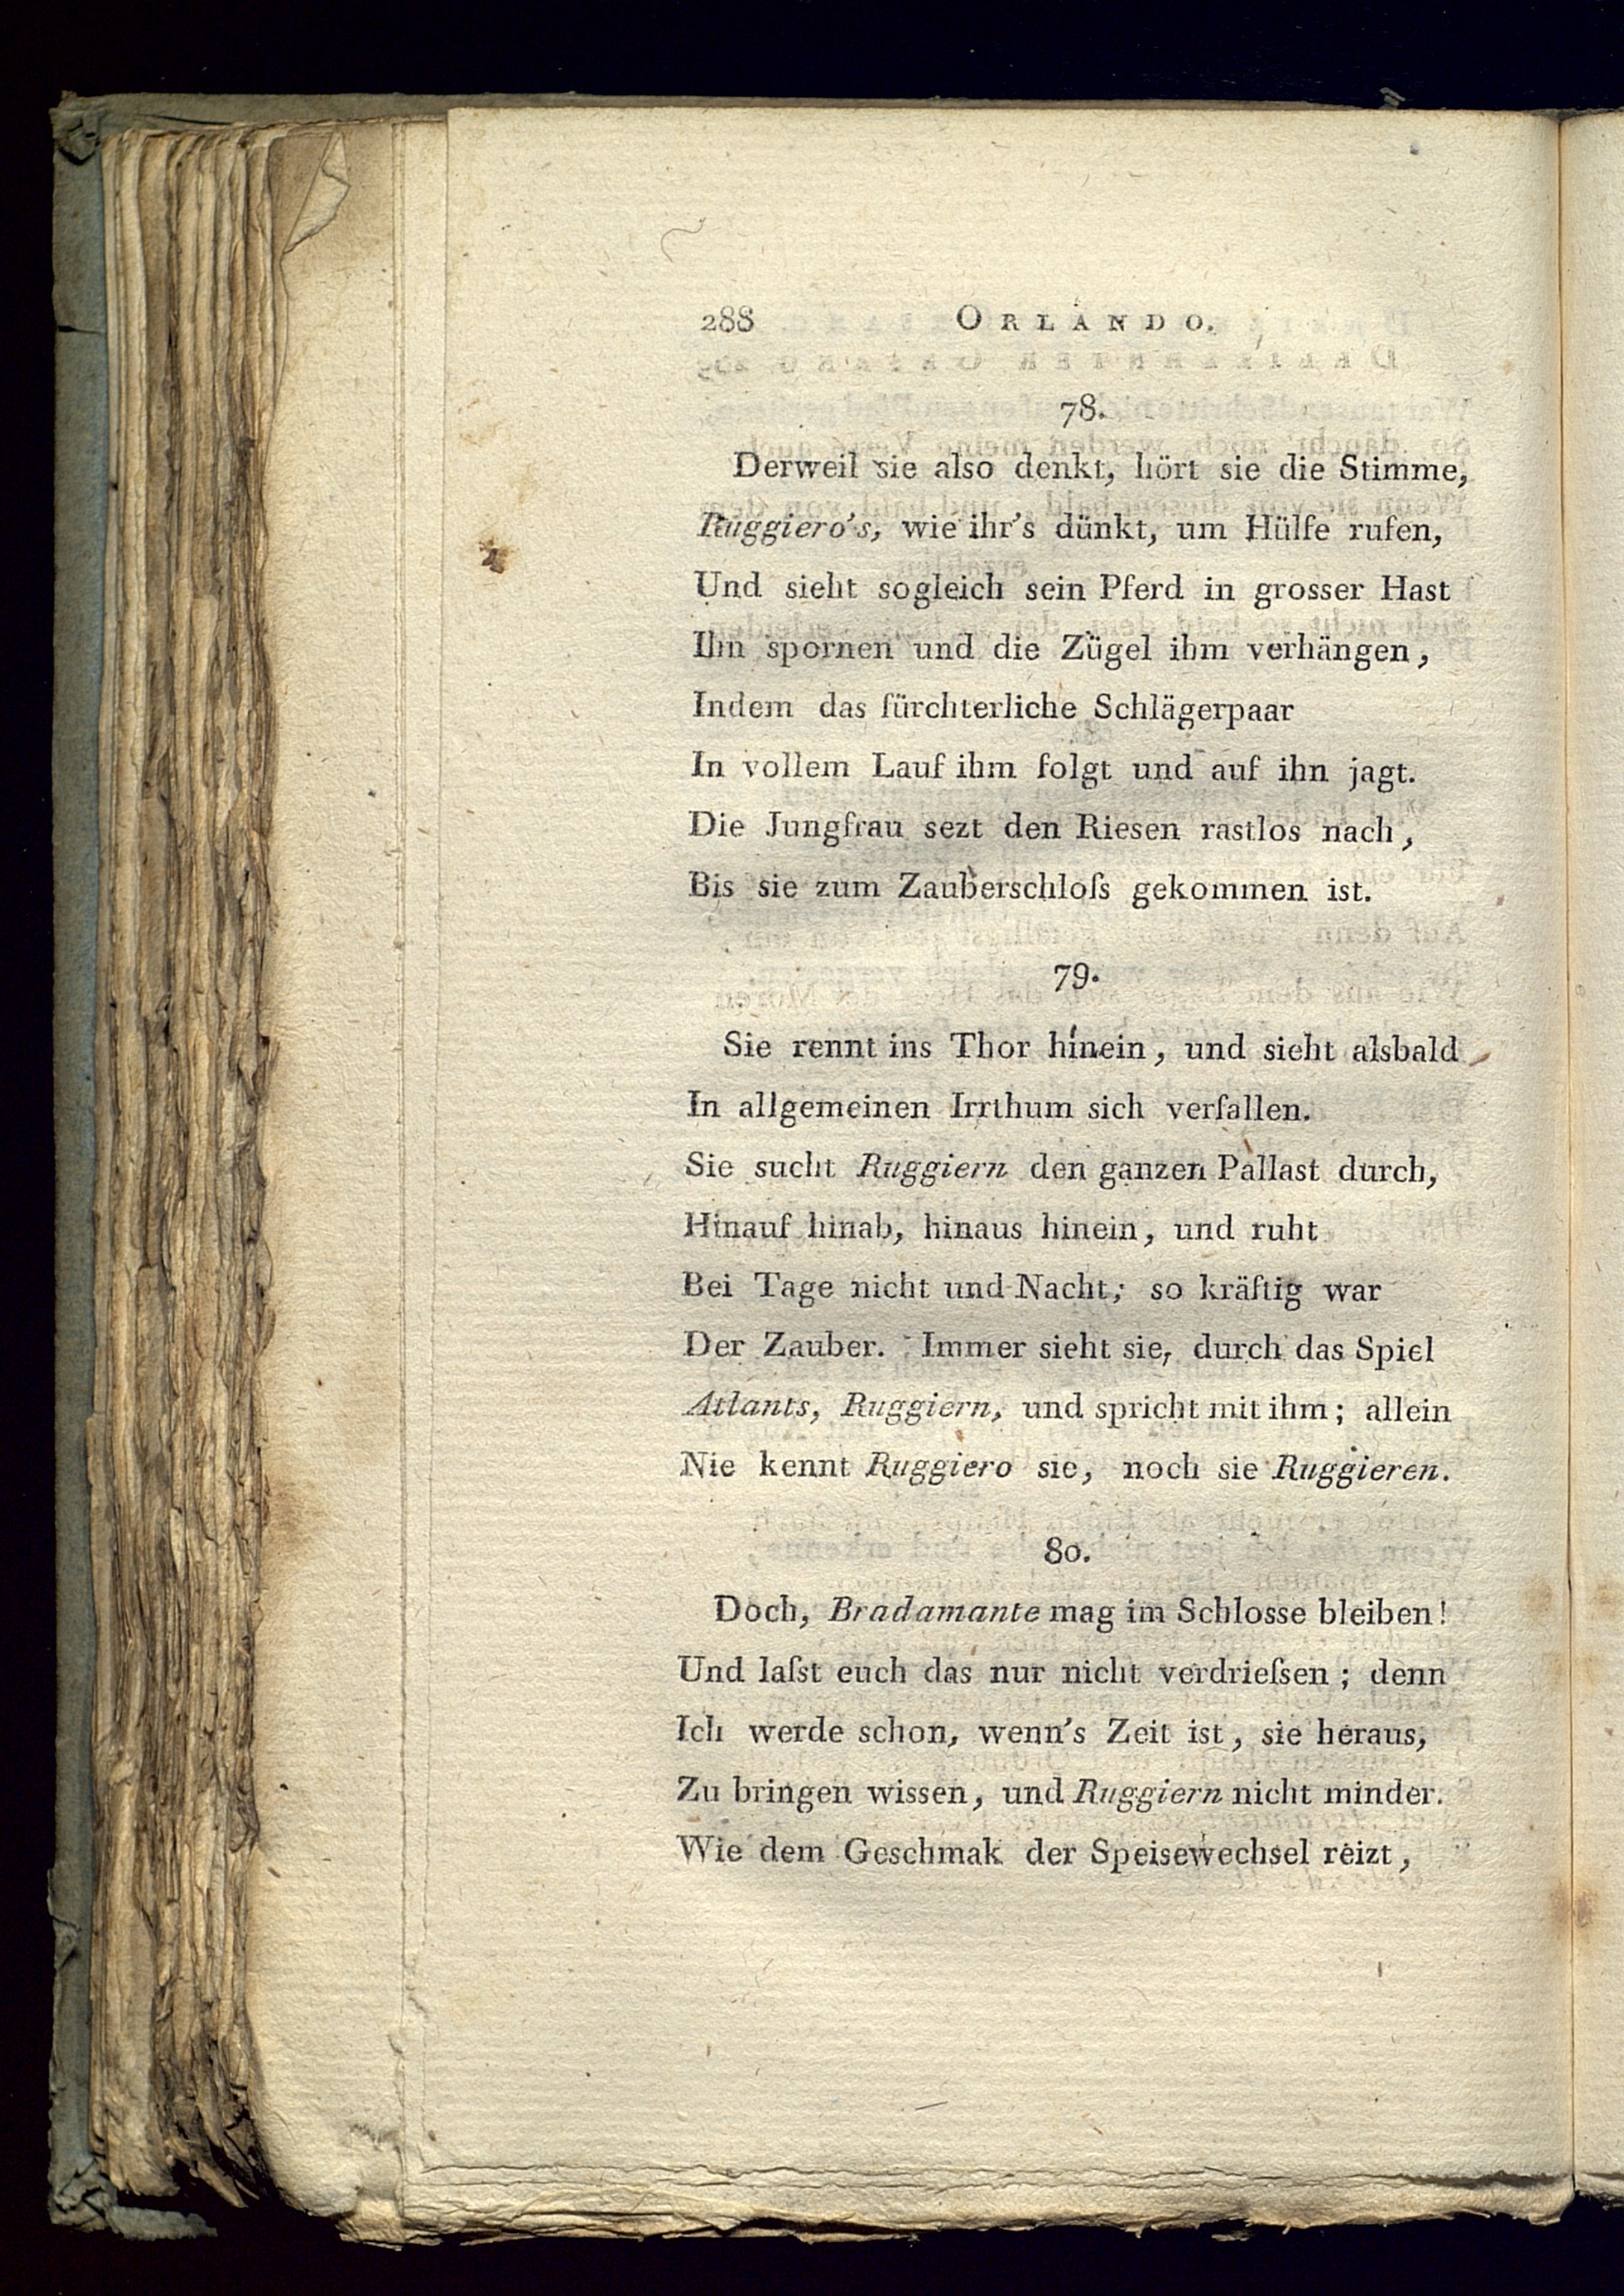 288 ORLANDO.
78.
Derweil sie also denkt, hört sie die Stimme,
Ruggiero's, wie ihr's dünkt, um Hülfe rufen,
Und sieht sogleich sein Pferd in grosser Hast
Ihn spornen und die Zügel ihm verhängen,
Indem das fürchterliche Schlägerpaar
In vollem Lauf ihm folgt und auf ihn jagt.
Die Jungfrau sezt den Riesen rastlos nach,
Bis sie zum Zauberschloſs gekommen ist.
79.
Sie rennt ins Thor hinein, und sieht alsbald
In allgemeinen Irrthum sich verfallen.
Sie sucht Ruggiern den ganzen Pallast durch,
Hinauf hinab, hinaus hinein, und ruht
Bei Tage nicht und Nacht; so kräftig war
Der Zauber. Immer sieht sie, durch das Spiel
Atlants, Ruggiern, und spricht mit ihm; allein
Nie kennt Ruggiero sie, noch sie Ruggieren.
80.
Doch, Bradamante mag im Schlosse bleiben!
Und laſst euch das nur nicht verdrieſsen; denn
Ich werde schon, wenn's Zeit ist, sie heraus,
Zu bringen wissen, und Ruggiern nicht minder.
Wie dem Geschmak der Speisewechsel reizt,